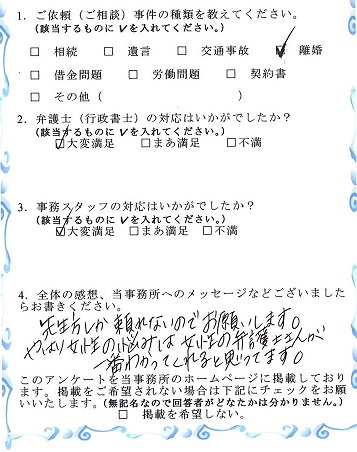 1. ご依頼（ご相談）事件の種類を教えてください。
(該当するものに✓を入れてください。)
□ 相続 □ 遺言 □ 交通事故 ☑ 離婚
□ 借金問題 □ 労働問題 □ 契約書
□ その他（ ）
2. 弁護士（行政書士）の対応はいかがでしたか？
(該当するものに✓を入れてください。)
☑大変満足 □まあ満足 □不満
3. 事務スタッフの対応はいかがでしたか？
(該当するものに✓を入れてください。)
☑大変満足 □まあ満足 □不満
4. 全体の感想、当事務所へのメッセージなどございました
らお書きください。
先生方しか頼れないのでお願いします。
やはり女性の悩みは女性の弁護士さんが
一番わかってくれると思ってます。
このアンケートを当事務所のホームページに掲載しており
ます。掲載をご希望されない場合は下記にチェックをお願
いいたします。(無記名なので回答者がどなたかは分かりません。)
□ 掲載を希望しない。